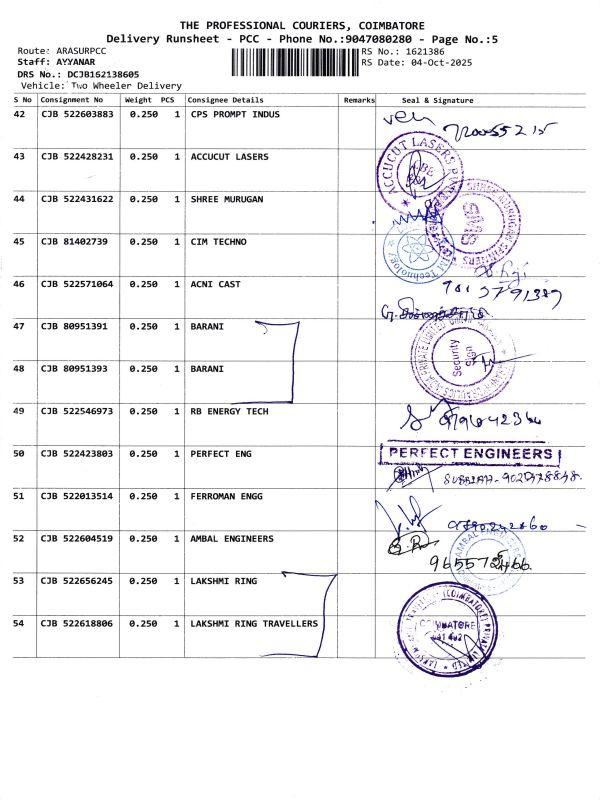 THE PROFESSIONAL COURIERS, COIMBATORE
Delivery Runsheet - PCC - Phone No.:9047080280 - Page No.:5
Route: ARASURPCC
RS No.: 1621386
Staff: AYYANAR
RS Date: 04-Oct-2025
DRS No.: DCJB162138605
Vehicle: Two Wheeler Delivery
S No Consignment No Weight PCS Consignee Details Remarks Seal & Signature
42 CJB 522603883 0.250 1 CPS PROMPT INDUS
43 CJB 522428231 0.250 1 ACCUCUT LASERS
ACCUCUT LASERS
44 CJB 522431622 0.250 1 SHREE MURUGAN
SMS
45 CJB 81402739 0.250 1 CIM TECHNO
CIM Technology
46 CJB 522571064 0.250 1 ACNI CAST
47 CJB 80951391 0.250 1 BARANI
PRIVATE LIMITED
Security
Sign
48 CJB 80951393 0.250 1 BARANI
49 CJB 522546973 0.250 1 RB ENERGY TECH
50 CJB 522423803 0.250 1 PERFECT ENG
PERFECT ENGINEERS
51 CJB 522013514 0.250 1 FERROMAN ENGG
52 CJB 522604519 0.250 1 AMBAL ENGINEERS
53 CJB 522656245 0.250 1 LAKSHMI RING
54 CJB 522618806 0.250 1 LAKSHMI RING TRAVELLERS
COIMBATORE
641 402